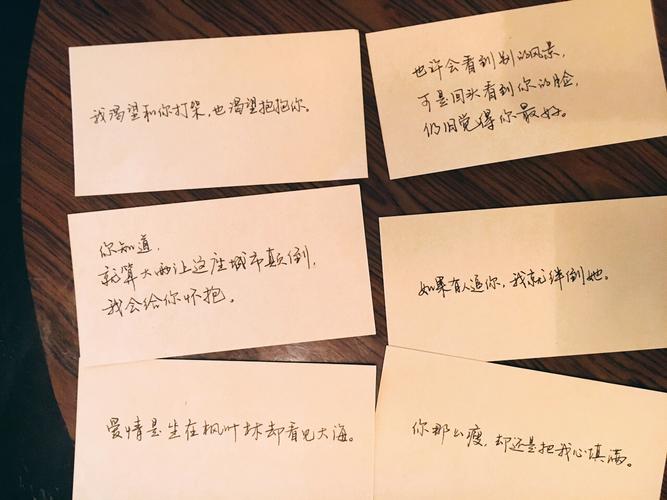 我渴望和你打架，也渴望抱抱你。
也许会看到别的风景，
可是回头看到你的脸，
仍旧觉得你最好。
你知道，
就算大雨让这座城市颠倒，
我会给你怀抱。
如果有人追你，我就绊倒她。
爱情是坐在枫叶林却看见大海。
你那么瘦，却还是把我心填满。